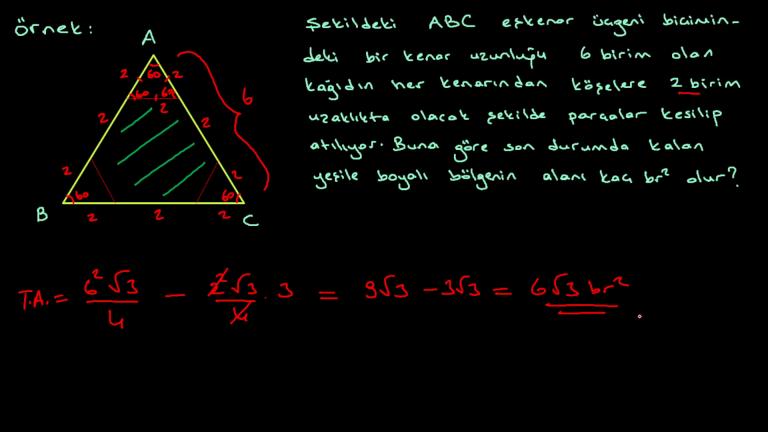 Örnek:
Şekildeki ABC eşkenar üçgeni biçimin-
deki bir kenar uzunluğu 6 birim olan
kağıdın her kenarından köşelere 2 birim
uzaklıkta olacak şekilde parçalar kesilip
atılıyor. Buna göre son durumda kalan
yeşile boyalı bölgenin alanı kaç br² olur?
A
2 60 2
60 60
2
6
2 2
2 2
B 60 60 C
2 2 2
T.A. = 6²√3/4 - 2²√3/4 . 3 = 9√3 - 3√3 = 6√3 br²